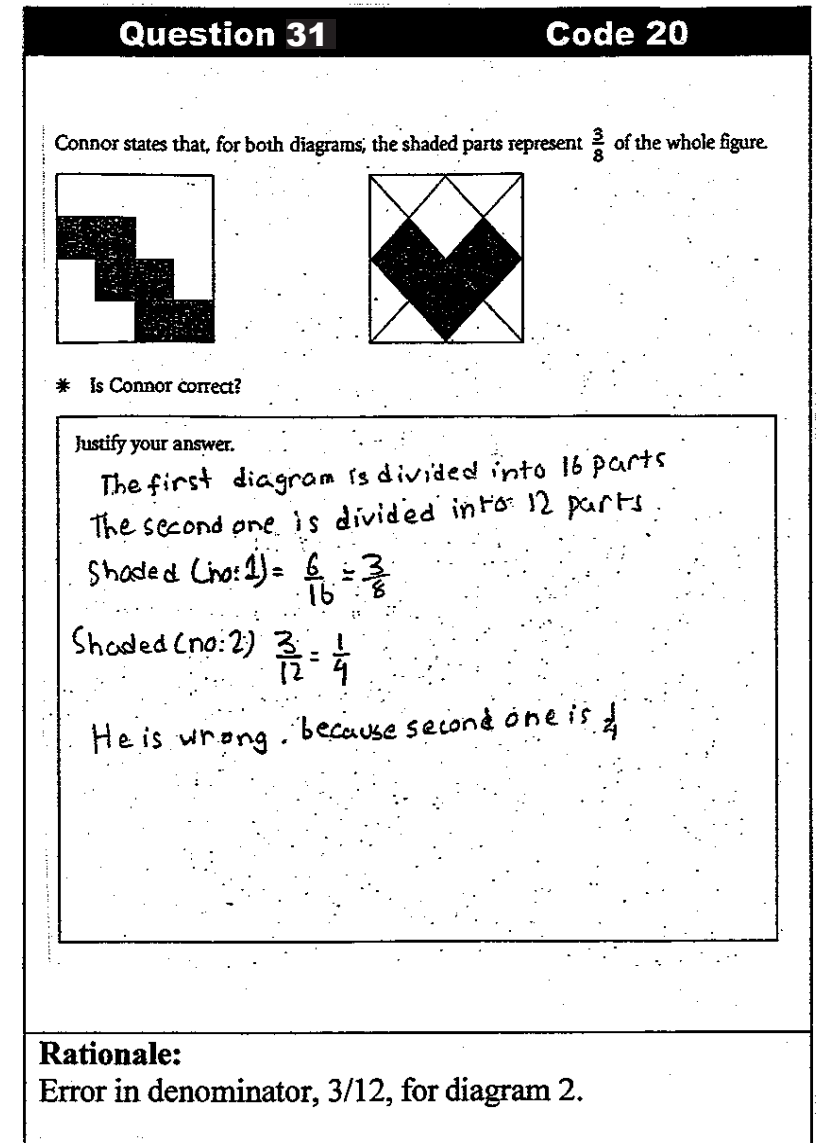 Question 31 Code 20
Connor states that, for both diagrams, the shaded parts represent 3/8 of the whole figure.
* Is Connor correct?
Justify your answer.
The first diagram is divided into 16 parts
The second one is divided into 12 parts.
Shaded (no:1) = 6/16 = 3/8
Shaded (no:2) 3/12 = 1/4
He is wrong. because second one is 1/4
Rationale:
Error in denominator, 3/12, for diagram 2.